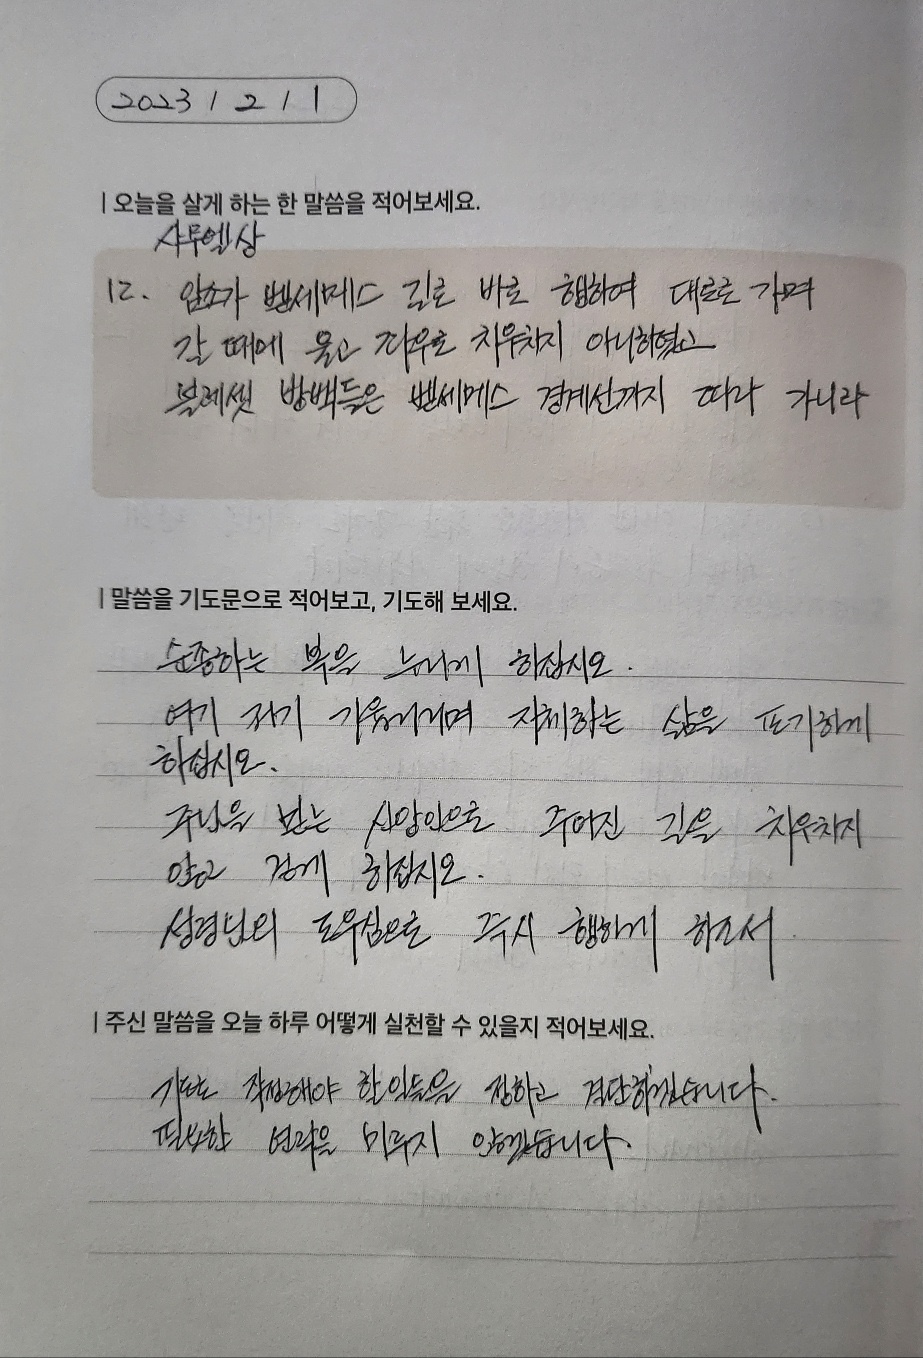 2023 / 2 / 1
| 오늘을 살게 하는 한 말씀을 적어보세요.
사무엘상
12. 암소가 벧세메스 길로 바로 행하여 대로로 가며
갈 때에 울고 좌우로 치우치지 아니하였고
블레셋 방백들은 벧세메스 경계선까지 따라 가니라
| 말씀을 기도문으로 적어보고, 기도해 보세요.
순종하는 복을 누리게 하십시오.
여기 저기 기웃거리며 지체하는 삶을 포기하게
하십시오.
주님을 믿는 신앙인으로 주어진 길을 치우치지
않고 걷게 하십시오.
성령님의 도우심으로 즉시 행하게 하소서
| 주신 말씀을 오늘 하루 어떻게 실천할 수 있을지 적어보세요.
작정해야 할 일들을 정하고 결단하겠습니다.
필요한 연락을 미루지 않겠습니다.